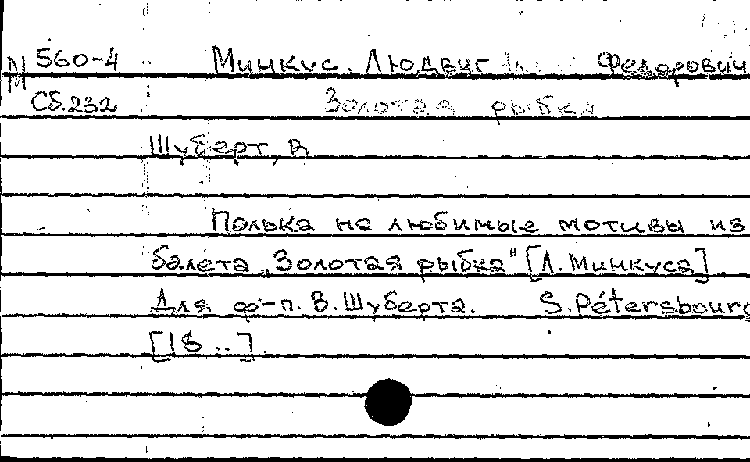 М 560-4 Минкус, Людвиг Федорович
Сб.232 Золотая рыбка
Шуберт, В
Полька на любимые мотивы из
балета „Золотая рыбка" [Л. Минкуса]
Для ф-п. В. Шуберта. S. Pétersbourg
[18 ..]